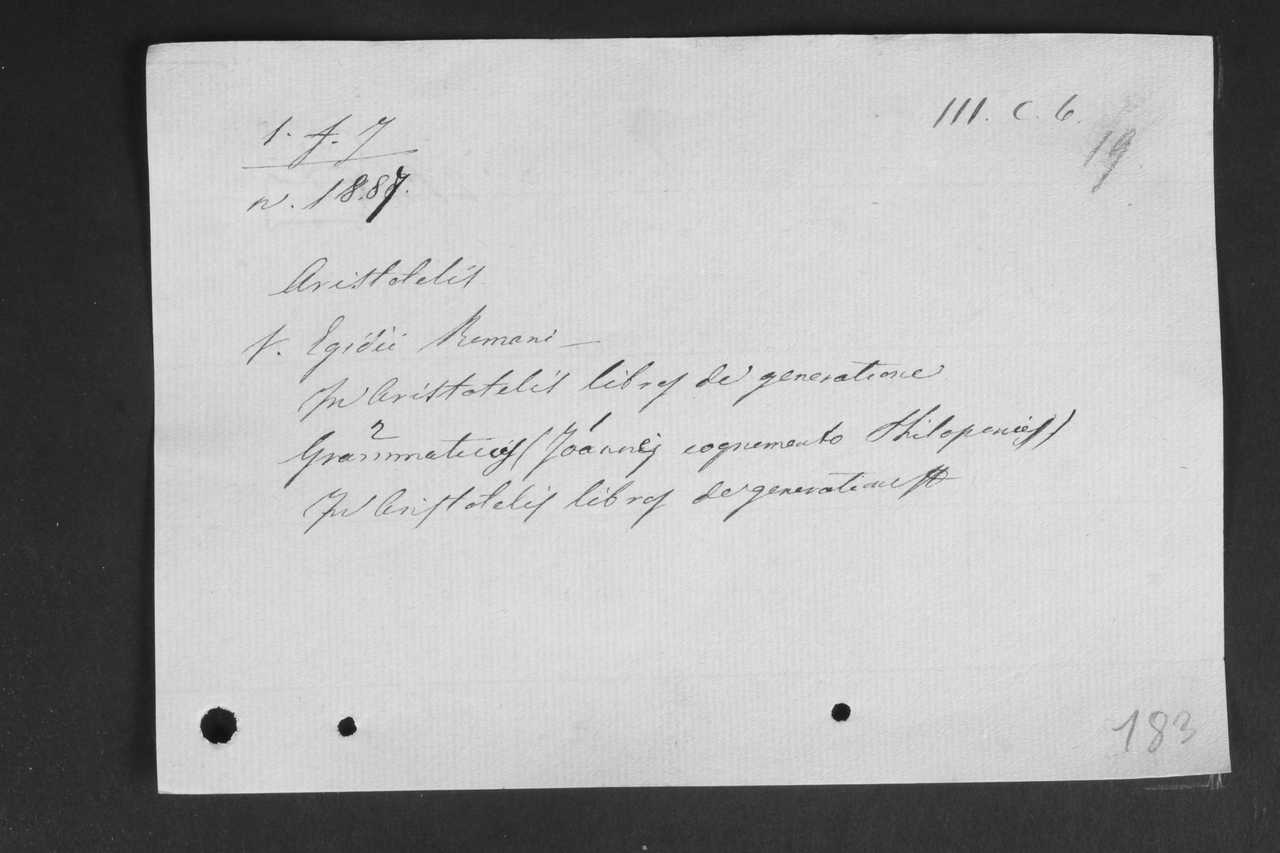 1. f. 7
III. C. 6.
19
n. 18.87.
Aristotelis
V. Egidii Romani —
In Aristotelis libros de generatione
2 1
Grammaticis (Joannes cognomento Philoponus)
In Aristotelis libros de generatione
183